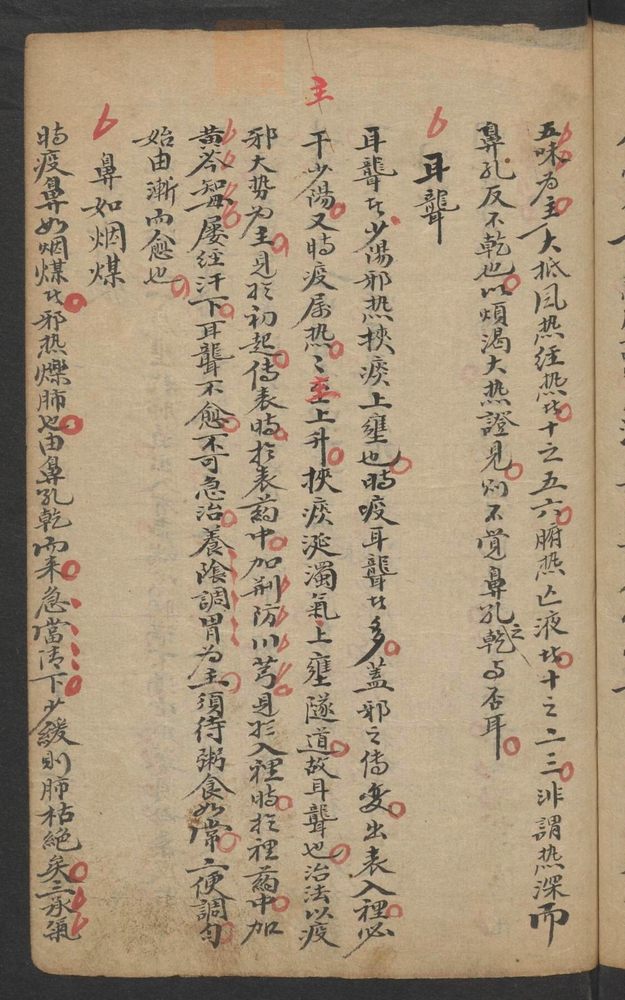 五味為主大抵風热经热者十之五六腑热亡液者十之二三非謂热深而
鼻孔反不乾也以煩渴大热證見則不覺鼻孔之乾与否耳
耳聾
耳聾者少陽邪热挾痰上壅也時疫耳聾者多蓋邪之傳变出表入裡必
干少陽又時疫属热〻主上升挾痰涎濁氣上壅隧道故耳聾也治法以疫
邪大势為主見於初起傳表時於表药中加荆防川芎見於入裡時於裡药中加
黄芩知母屡经汗下耳聾不愈不可急治養陰調胃為主須待粥食如常二便調匀
始由漸而愈也
鼻如烟煤
時疫鼻如烟煤者邪热爍肺也由鼻孔乾而来急當清下少緩則肺枯絶矣三承氣
主